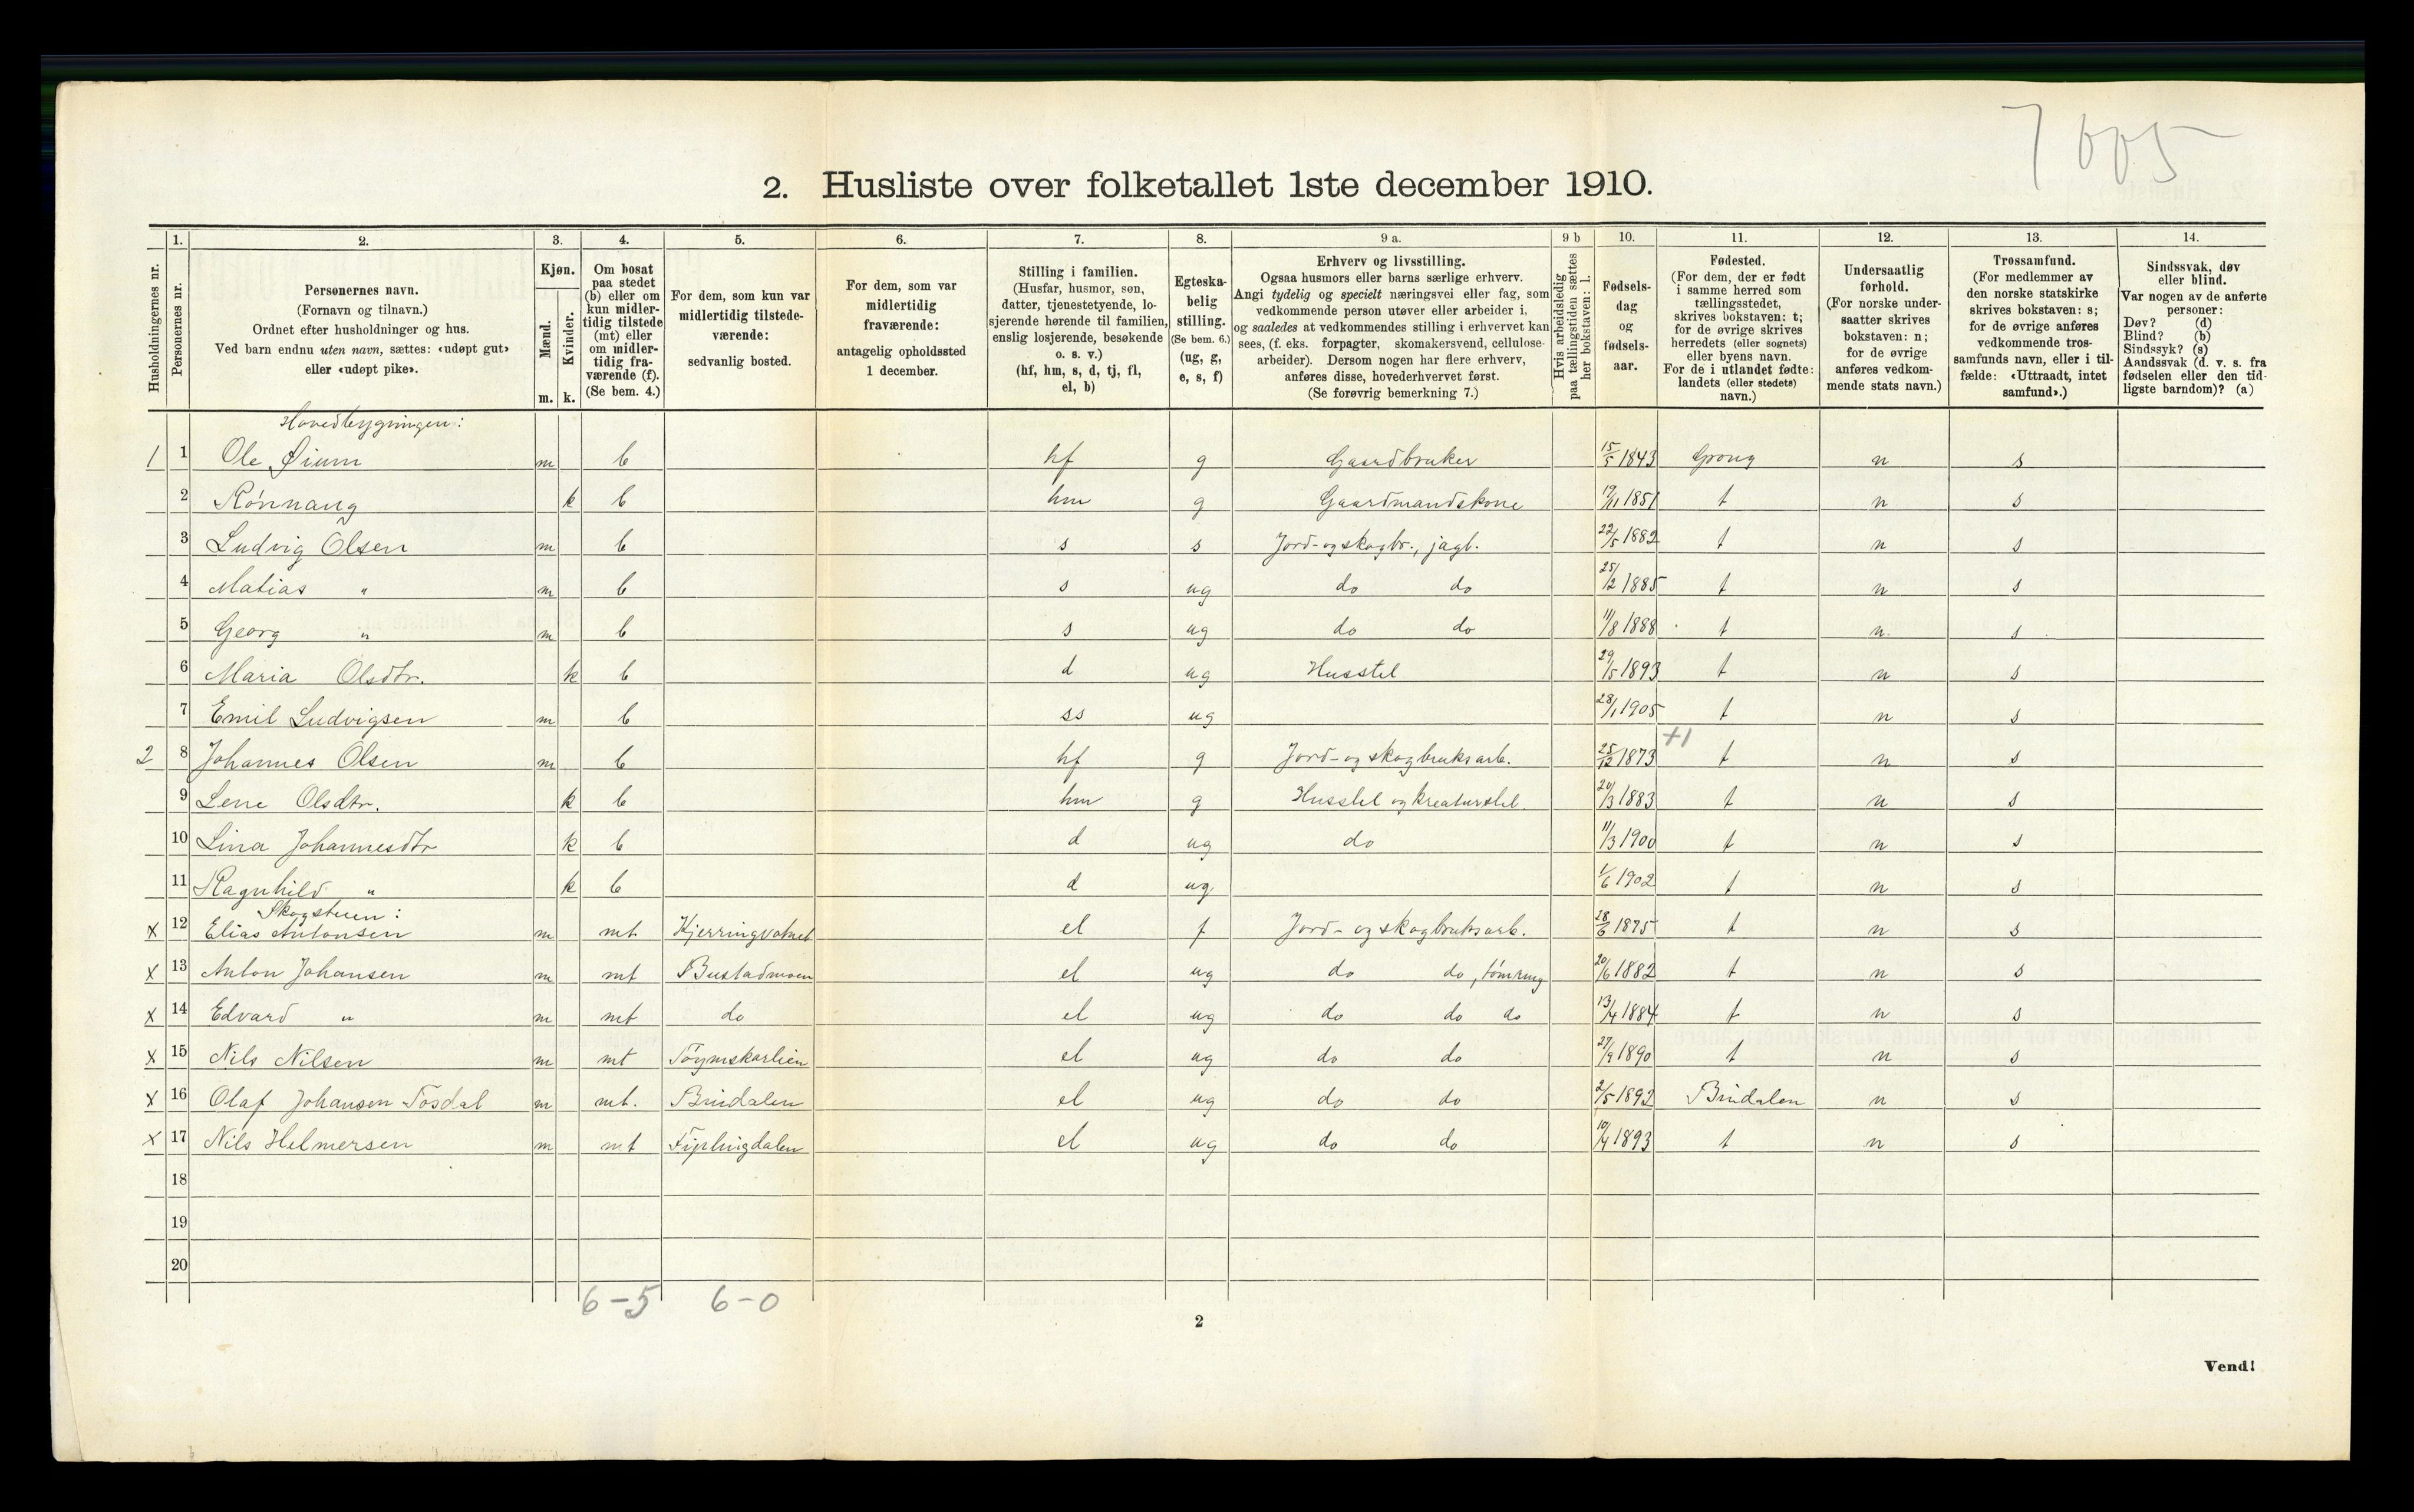 7 005
2. Husliste over folketallet 1ste december 1910.
1. 2. 3. 4. 5. 6. 7. 8. 9 a. 9 b 10. 11. 12. 13. 14.
Husholdningernes nr.
Personernes nr.
Personernes navn.
(Fornavn og tilnavn.)
Ordnet efter husholdninger og hus.
Ved barn endnu uten navn, sættes: «udøpt gut»
eller «udøpt pike».
Kjøn.
Mænd.
Kvinder.
m. k.
Om bosat
paa stedet
(b) eller om
kun midler-
tidig tilstede
(mt) eller
om midler-
tidig fra-
værende (f).
(Se bem. 4.)
For dem, som kun var
midlertidig tilstede-
værende:
sedvanlig bosted.
For dem, som var
midlertidig
fraværende:
antagelig opholdssted
1 december.
Stilling i familien.
(Husfar, husmor, søn,
datter, tjenestetyende, lo-
sjerende hørende til familien,
enslig losjerende, besøkende
o. s. v.)
(hf, hm, s, d, tj, fl,
el, b)
Egteska-
belig
stilling.
(Se bem. 6.)
(ug, g,
e, s, f)
Erhverv og livsstilling.
Ogsaa husmors eller barns særlige erhverv.
Angi tydelig og specielt næringsvei eller fag, som
vedkommende person utøver eller arbeider i,
og saaledes at vedkommendes stilling i erhvervet kan
sees, (f. eks. forpagter, skomakersvend, cellulose-
arbeider). Dersom nogen har flere erhverv,
anføres disse, hovederhvervet først.
(Se forøvrig bemerkning 7.)
Hvis arbeidsledig
paa tællingstiden sættes
her bokstaven: l.
Fødsels-
dag
og
fødsels-
aar.
Fødested.
(For dem, der er født
i samme herred som
tællingsstedet,
skrives bokstaven: t;
for de øvrige skrives
herredets (eller sognets)
eller byens navn.
For de i utlandet fødte:
landets (eller stedets)
navn.)
Undersaatlig
forhold.
(For norske under-
saatter skrives
bokstaven: n;
for de øvrige
anføres vedkom-
mende stats navn.)
Trossamfund.
(For medlemmer av
den norske statskirke
skrives bokstaven: s;
for de øvrige anføres
vedkommende tros-
samfunds navn, eller i til-
fælde: «Uttraadt, intet
samfund».)
Sindssvak, døv
eller blind.
Var nogen av de anførte
personer:
Døv? (d)
Blind? (b)
Sindssyk? (s)
Aandssvak (d. v. s. fra
fødselen eller den tid-
ligste barndom)? (a)
Hovedbygningen:
1 1 Ole Øium m b hf g Gaardbruker 15/5 1843 Grong n s
2 Rønnaug k b hm g Gaardmandskone 19/11 1851 t n s
3 Ludvig Olsen m b s s Jord- og skogbr., jagt. 22/5 1882 t n s
4 Matias " m b s ug do do 25/2 1885 t n s
5 Georg " m b s ug do do 11/8 1888 t n s
6 Maria Olsdtr. k b d ug Husstel 29/5 1893 t n s
7 Emil Ludvigsen m b ss ug 28/1 1905 t n s
+1
2 8 Johannes Olsen m b hf g Jord- og skogbruksarb. 25/12 1873 t n s
9 Lene Olsdtr. k b hm g Husstel og kreaturstel. 20/3 1883 t n s
10 Lina Johannesdtr k b d ug do 11/3 1900 t n s
11 Ragnhild " k b d ug 1/6 1902 t n s
Skogstuen:
x 12 Elias Antonsen m mt Kjerringvatnet el f Jord- og skogbruksarb. 28/6 1875 t n s
x 13 Anton Johansen m mt Bustadmoen el ug do do, tømring 20/6 1882 t n s
x 14 Edvard " m mt do el ug do do do 13/4 1884 t n s
x 15 Nils Nilsen m mt el ug do do 27/9 1890 t n s
x 16 Olaf Johansen Tosdal m mt. Bindalen el ug do do 2/5 1892 Bindalen n s
x 17 Nils Helmersen m mt Fiplingdalen el ug do do 10/4 1893 t n s
18
19
20
6-5 6-0
2
Vend!